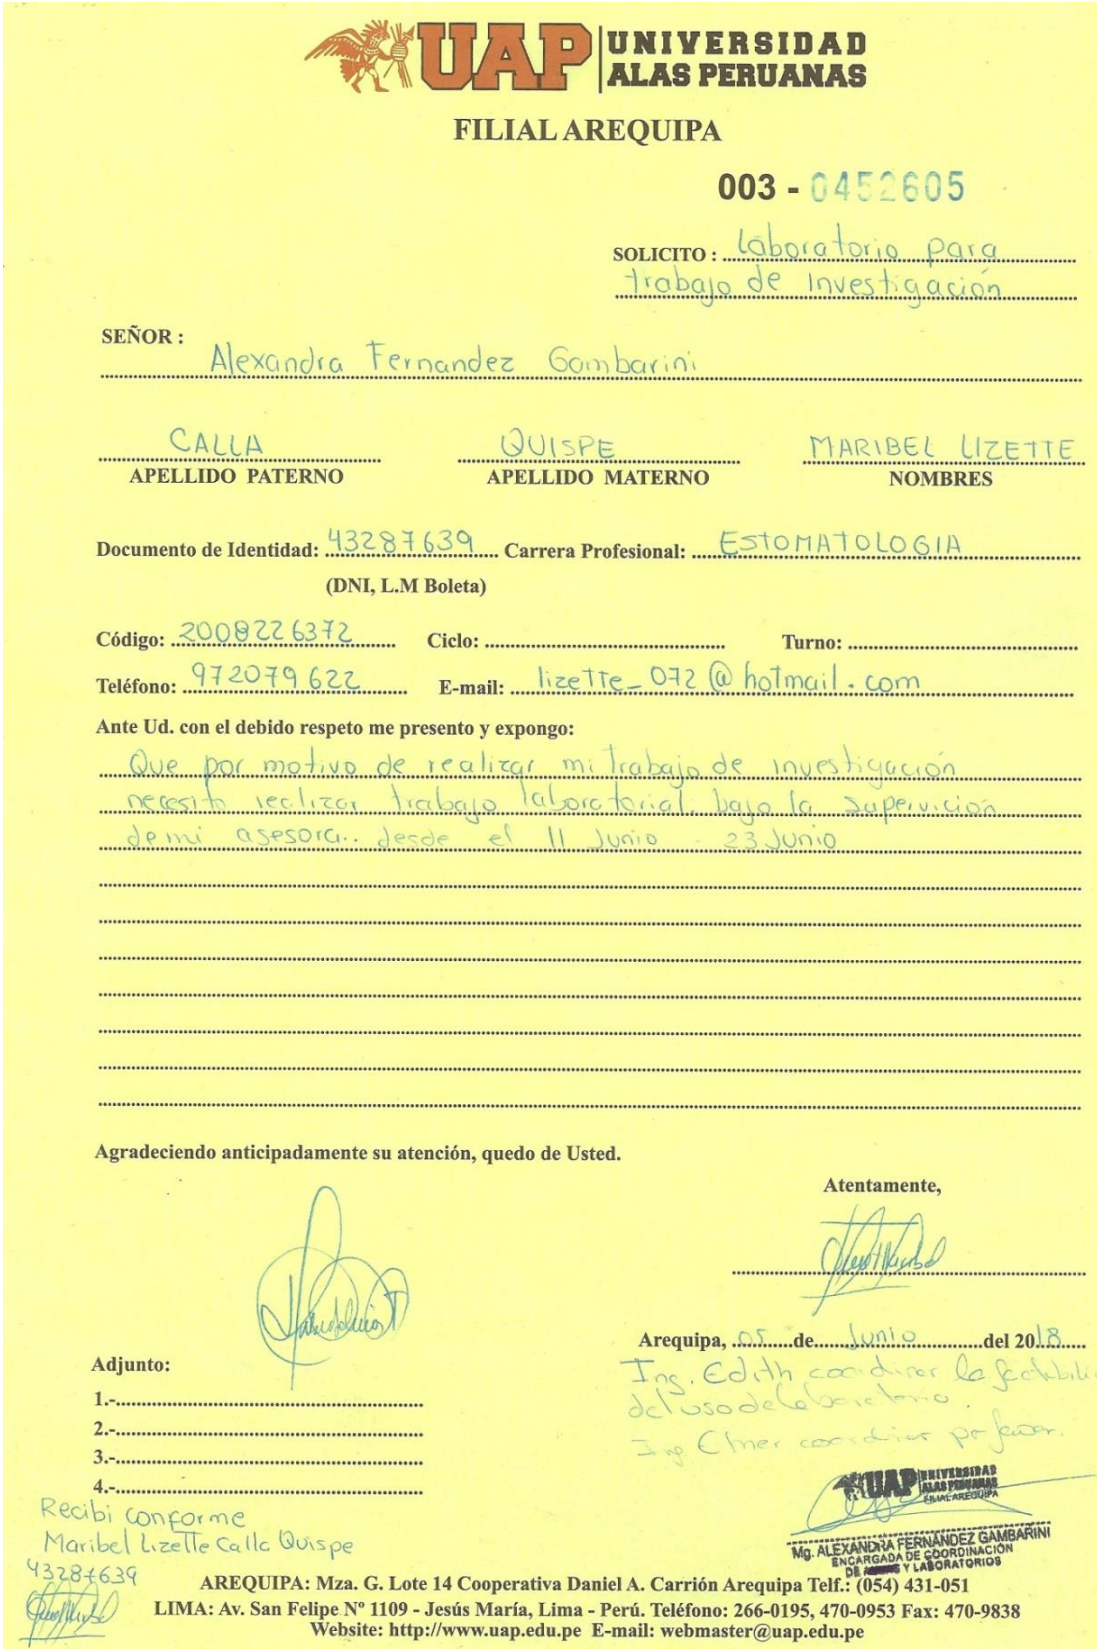 UAP UNIVERSIDAD
ALAS PERUANAS
FILIAL AREQUIPA
003 - 0452605
SOLICITO : Laboratorio para
trabajo de investigación
SEÑOR :
Alexandra Fernandez Gambarini
CALLA QUISPE MARIBEL LIZETTE
APELLIDO PATERNO APELLIDO MATERNO NOMBRES
Documento de Identidad: 43287639 Carrera Profesional: ESTOMATOLOGIA
(DNI, L.M Boleta)
Código: 2008226372 Ciclo: Turno:
Teléfono: 972079622 E-mail: lizette_072@hotmail.com
Ante Ud. con el debido respeto me presento y expongo:
Que por motivo de realizar mi trabajo de investigación
necesito realizar trabajo laboratorial bajo la supervicion
de mi asesora.. desde el 11 Junio - 23 Junio
Agradeciendo anticipadamente su atención, quedo de Usted.
Atentamente,
Arequipa, 05 de Junio del 2018
Adjunto:
Ing. Edith coordinar la factibili
1.-
del uso de laboratorio.
2.-
Ing Elmer coordinar por favor.
3.-
4.-
UAP UNIVERSIDAD
ALAS PERUANAS
FILIAL AREQUIPA
Recibi conforme
Maribel Lizette Calla Quispe
Mg. ALEXANDRA FERNÁNDEZ GAMBARINI
ENCARGADA DE COORDINACIÓN
DE Y LABORATORIOS
43287639
AREQUIPA: Mza. G. Lote 14 Cooperativa Daniel A. Carrión Arequipa Telf.: (054) 431-051
LIMA: Av. San Felipe Nº 1109 - Jesús María, Lima - Perú. Teléfono: 266-0195, 470-0953 Fax: 470-9838
Website: http://www.uap.edu.pe E-mail: webmaster@uap.edu.pe